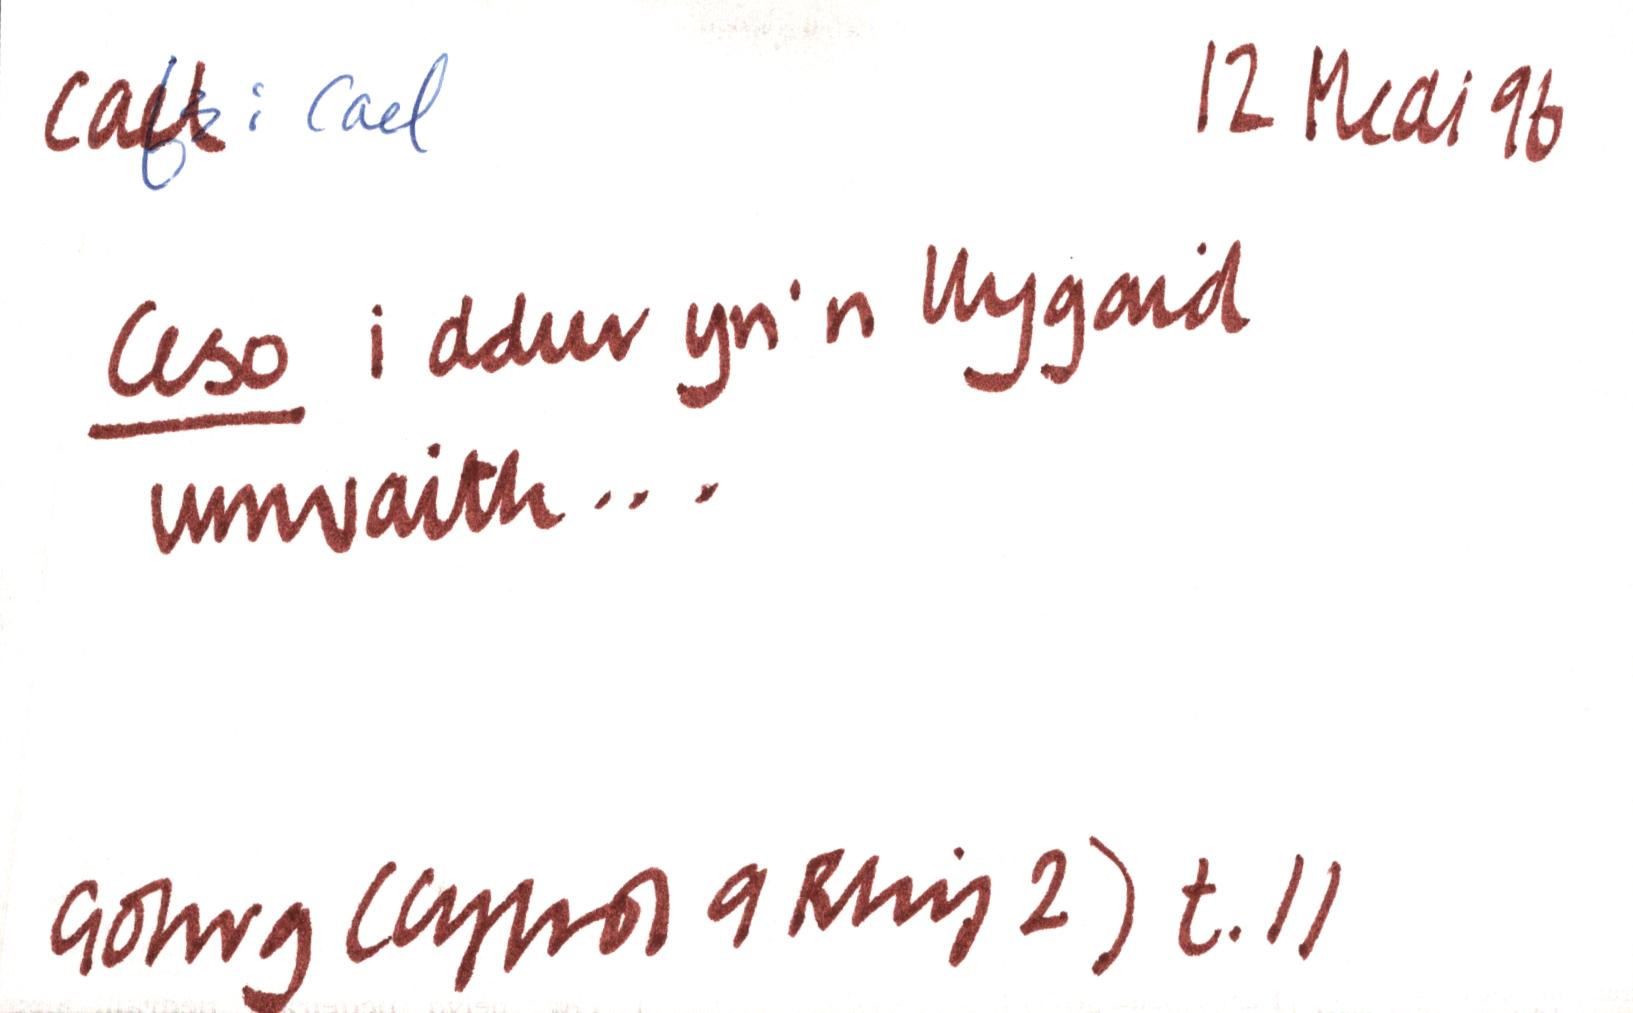 caf : cael 12 Medi 96
Ceso i ddur yn'n llygaid
unwaith...
Golwg (Cyfrol 9 Rhif 2) t. 11